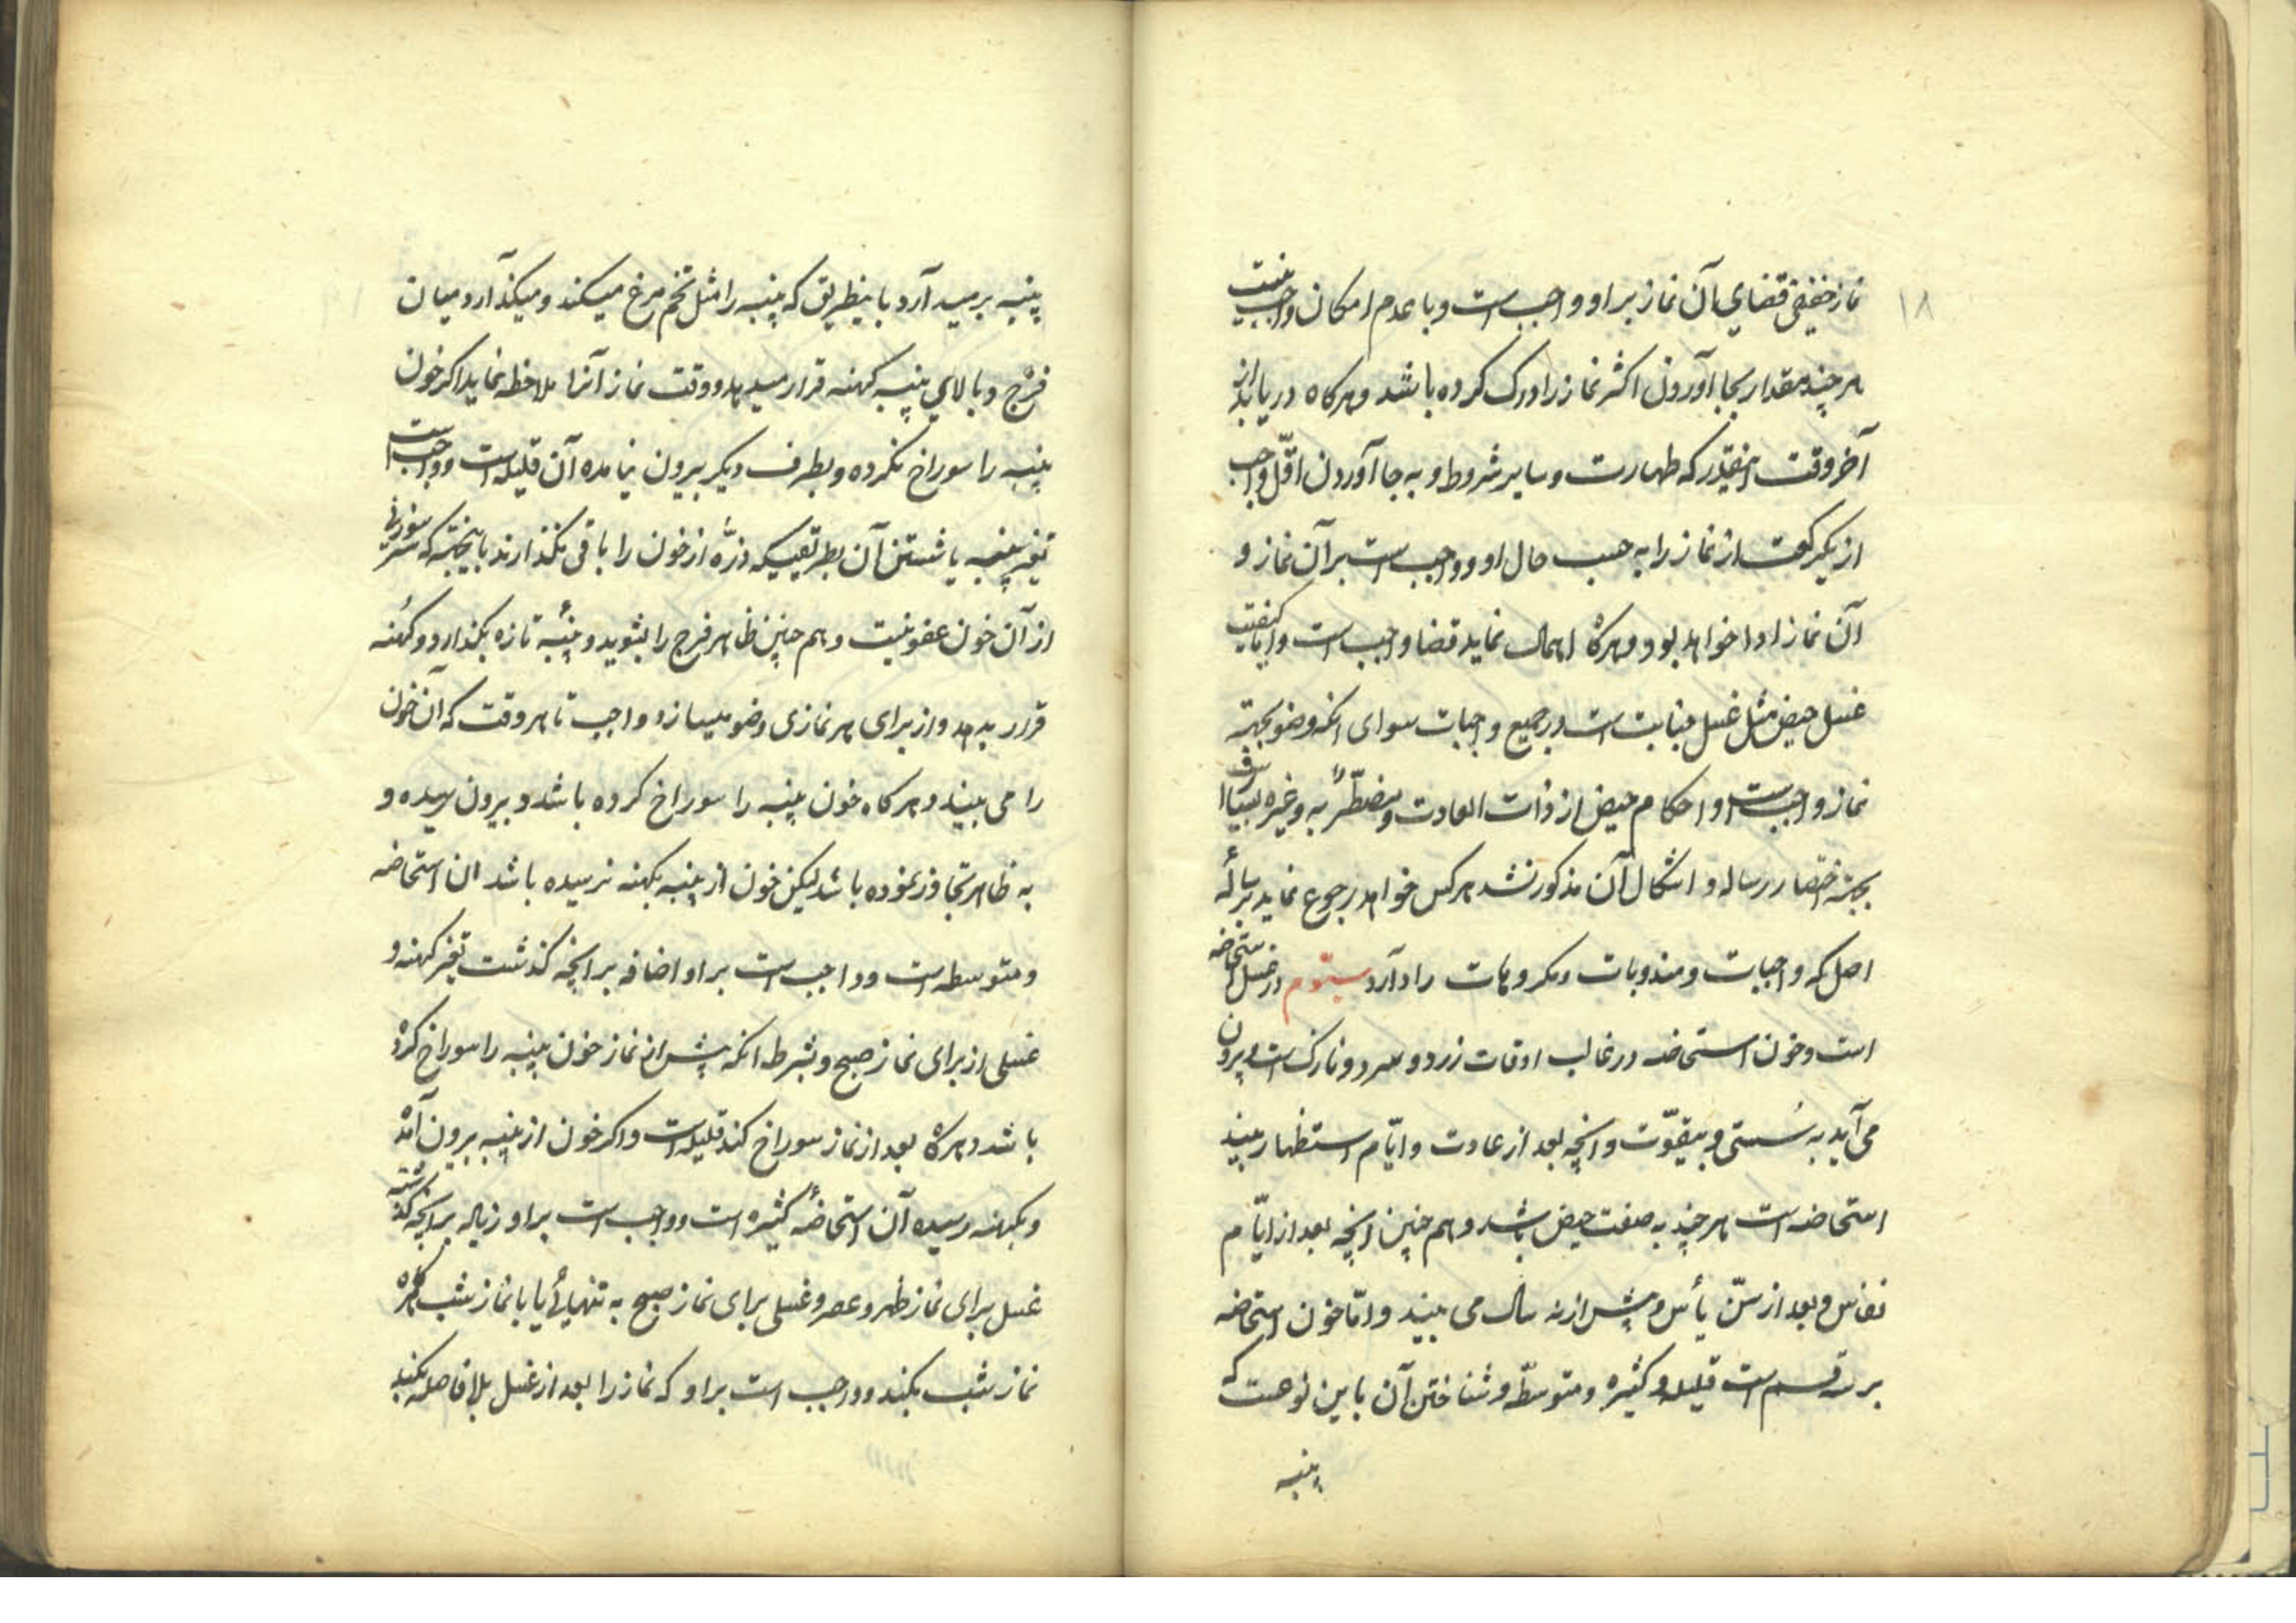 ۱۸
نماز خفیفی قضای آن نماز براو واجب است و با عدم امکان واجب نیست
هر چند مقدار بجا آوردن اکثر نماز را درک کرده باشد و هرکاه دریابد از
آخر وقت اینقدر که طهارت و سایر شروط و به جا آوردن اقلّ واجب
از یکرکعت از نماز را به حسب حال او و واجب است بر آن نماز و
آن نماز ادا خواهد بود و هرکاه اهمال نماید قضا واجب است و اما کیفیت
غسل حیض مثل غسل جنابت است در جمیع واجبات سوای انکه وضو بجهة
نماز واجب است و احکام حیض از ذات العادت و مضطّربه و غیره بسیار است
بجهة اختصار رساله و اشکال آن مذکور نشد هرکس خواهد رجوع نماید برسالهٔ
اصل که واجبات و مندوبات و مکروهات را دارد سیّوم در غسل استحاضه
است و خون استحاضه در غالب اوقات زرد و سرد و نازک است و بیرون
می آید به سُستی و بیقوّت و انچه بعد از عادت و ایّام استظهار بیند
استحاضه است هر چند به صفت حیض باشد و هم چنین انچه بعد از ایّام
نفاس و بعد از سنّ یأس و پیش از نه سال می بیند و امّا خون استحاضه
بر سه قسم است قلیله و کثیره و متوسطّه و شناختن آن باین نوعست که
پنبه
پنبه بر میدارد باینطریق که پنبه را مثل تخم مرغ میکند و میکذارد میان
فرْج و بالای پنبه کهنه قرار میدهد و وقت نماز آنرا ملاحظه نماید اکر خون
پنبه را سوراخ نکرده و بطرف دیکر بیرون نیامده آن قلیله است و واجب است
تغیر پنبه یا شستن آن بطریقیکه ذرّه از خون را باقی نکذارند باینجهة که سر سوزنی
از آن خون عفو نیست و هم چنین ظاهر فرج را بشوید و پنبهٔ تازه بکذارد و کُهنه
قرار بدهد و از برای هر نمازی وضو میسازد واجب تا هر وقت که آن خون
را می بیند و هرکاه خون پنبه را سوراخ کرده باشد و بیرون رسیده و
به ظاهر تجاوز نموده باشد لیکن خون از پنبه بکهنه نرسیده باشد ان استحاضه
و متوسطه است و واجب است براو اضافه بر انچه کذشت تغیر کهنه و
غسلی از برای نماز صبح و بشرط انکه پیش از نماز خون پنبه را سوراخ کرده
باشد و هرکاه بعد از نماز سوراخ کند قلیله است و اکر خون از پنبه بیرون آمده
و بکهنه رسیده آن استحاضهٔ کثیره است و واجب است براو زیاله بر انچه کذشته
غسل برای نماز ظهر و عصر و غسلی برای نماز صبح به تنهائی یا با نماز شب هرکاه
نماز شب بکند و واجب است براو که نماز را بعد از غسل بلافاصله بکند